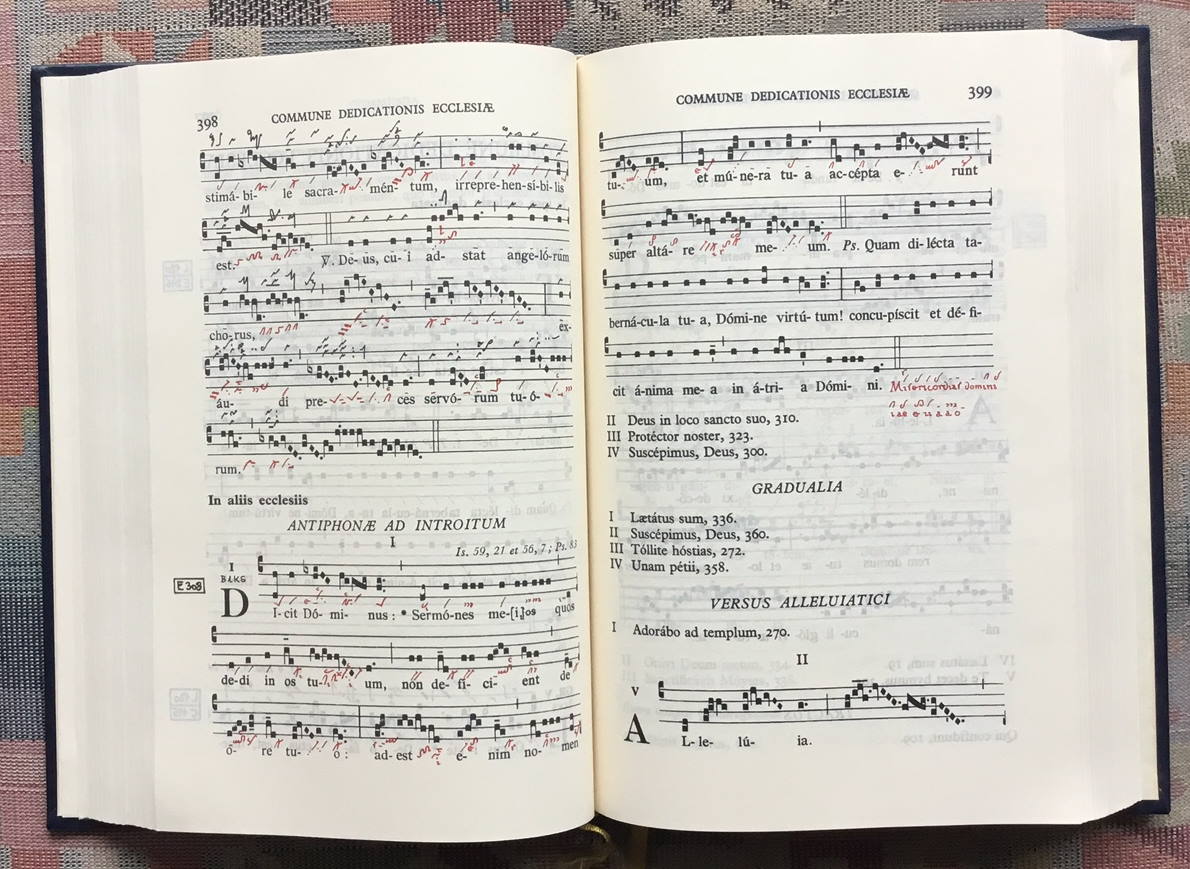 398
COMMUNE DEDICATIONIS ECCLESIÆ
stimá- bi- le sacra- mén- tum, irrepre-hen-sí-bi-lis
est. ℣. De- us, cu- i ad- stat ange-ló-rum
cho-rus, ex-
áu- di pre- ces servó- rum tu-ó-
rum.
In aliis ecclesiis
ANTIPHONÆ AD INTROITUM
I
Is. 59, 21 et 56, 7; Ps. 83
I
BLKS
E 308
D I-cit Dó- mi- nus: * Sermó-nes me-[i]os quos
de-di in os tu- um, non de- fí- ci- ent de
o- re tu- o: ad-est e- nim no- men
COMMUNE DEDICATIONIS ECCLESIÆ
399
tu- um, et mú-ne-ra tu- a ac-cépta e- runt
super altá- re me- um. Ps. Quam di-lécta ta-
berná-cu-la tu- a, Dómi-ne virtú- tum! concu-píscit et dé-fi-
cit á-nima me- a in á-tri- a Dómi- ni. Misericordias domini
iae e u a a o
II Deus in loco sancto suo, 310.
III Protéctor noster, 323.
IV Suscépimus, Deus, 300.
GRADUALIA
I Lætátus sum, 336.
II Suscépimus, Deus, 360.
III Tóllite hóstias, 272.
IV Unam pétii, 358.
VERSUS ALLELUIATICI
I Adorábo ad templum, 270.
II
V
A L-le- lú- ia.